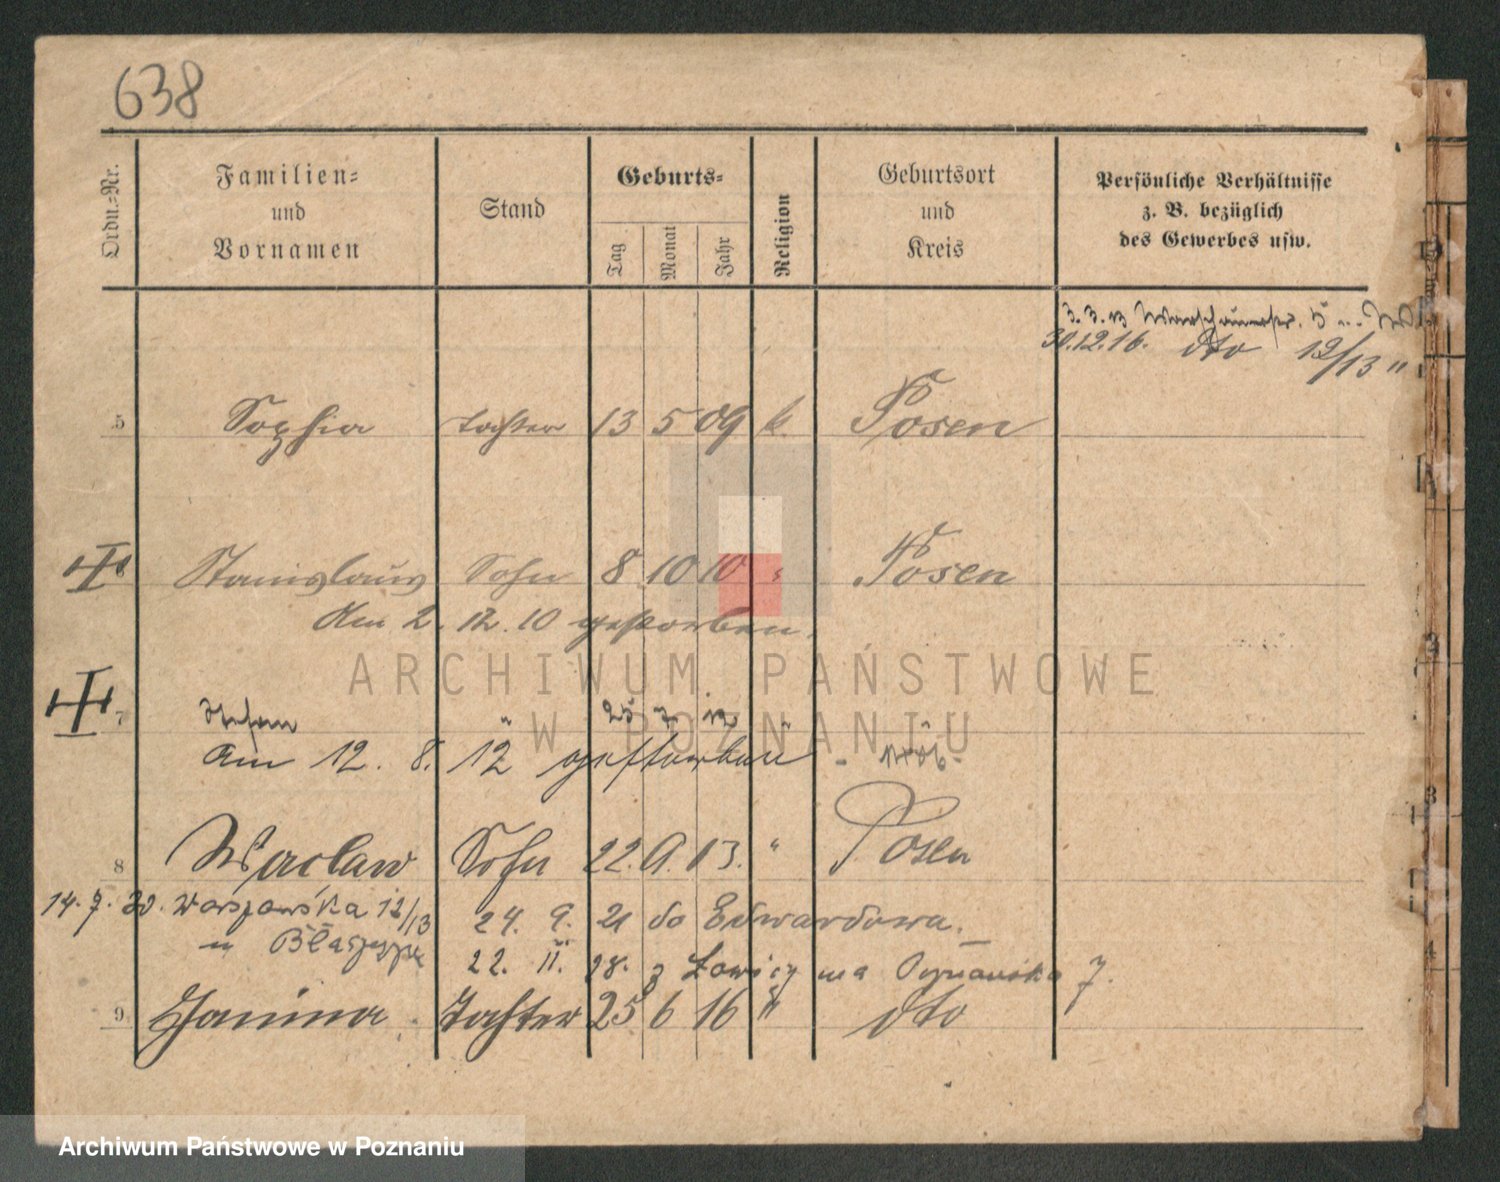 638
Ordn.-Nr.
Familien-
und
Vornamen
Stand
Geburts-
Tag
Monat
Jahr
Religion
Geburtsort
und
Kreis
Persönliche Verhältnisse
z. B. bezüglich
des Gewerbes usw.
3. 3. 13 Warschauerstr. 5
30.12.16. dto 12/13 "
5 Sophia Tochter 13 5 09 k. Posen
6 Stanislaus Sohn 8 10 10 " Posen
Am 2. 12. 10 gestorben.
7 Stefan " 25 7 12 " "
Am 12. 8. 12 gestorben
8 Waclaw Sohn 22. 9. 13. " Posen
14. 7. 20. Warszawska 12/13
24. 9. 21 do Edwardowa.
22. II. 28. z Łowicz na Poznańska 7.
9 Janina Tochter 25 6 16 " dto
ARCHIWUM PAŃSTWOWE
W POZNANIU
Archiwum Państwowe w Poznaniu